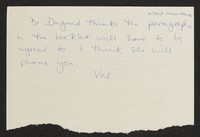 Dr Dugend thinks the paragraph
in the booklet will have to be
agreed to I think she will
phone you
Val